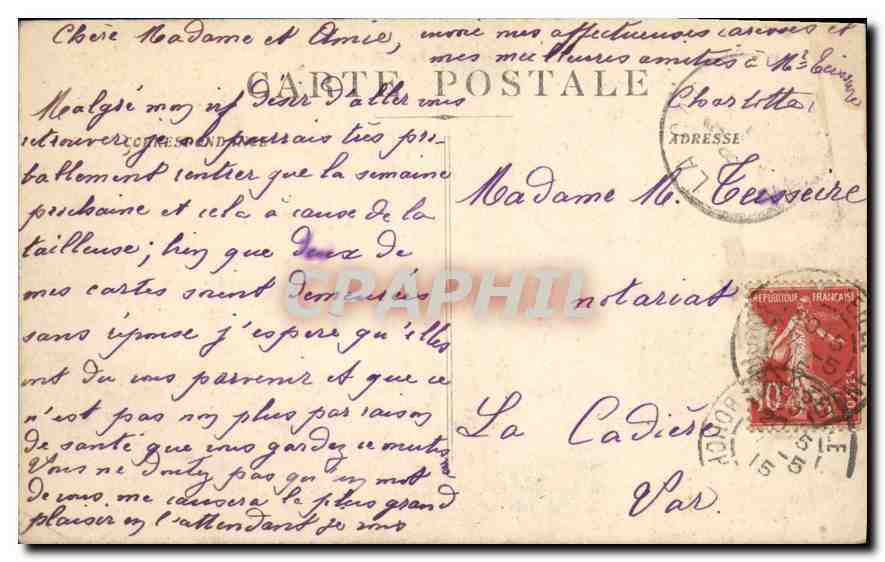 Chère Madame et Amie,
CARTE POSTALE
CORRESPONDANCE
Malgré mon vif désir d'aller vous
retrouver, je ne pourrais très pro-
bablement rentrer que la semaine
prochaine et cela à cause de la
tailleuse; bien que deux de
mes cartes soient demeurées
sans réponse j'espère qu'elles
ont du vous parvenir et que ce
n'est pas non plus par raison
de santé que vous gardez ce mutisme
Vous ne doutez pas qu'un mot
de vous me causera le plus grand
plaisir en l'attendant je vous
envoie mes affectueuses caresses et
mes meilleures amitiés à Mr Teisseire
Charlotte
ADRESSE
Madame M. Teisseire
notariat
La Cadière
Var.
REPUBLIQUE FRANÇAISE
10
POSTES
CPAPHIL